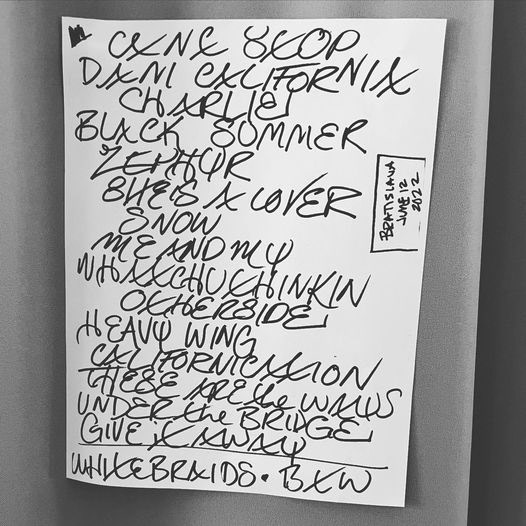 CANT STOP
DANI CALIFORNIA
CHARLIE
BLACK SUMMER
ZEPHYR
SHE'S A LOVER
SNOW
ME AND MY
WHATCHU THINKIN
OTHERSIDE
HEAVY WING
CALIFORNICATION
THESE ARE the WAYS
UNDER the BRIDGE
GIVE it AWAY
WHITE BRAIDS • BTW
BRATISLAVA
JUNE 12
2022